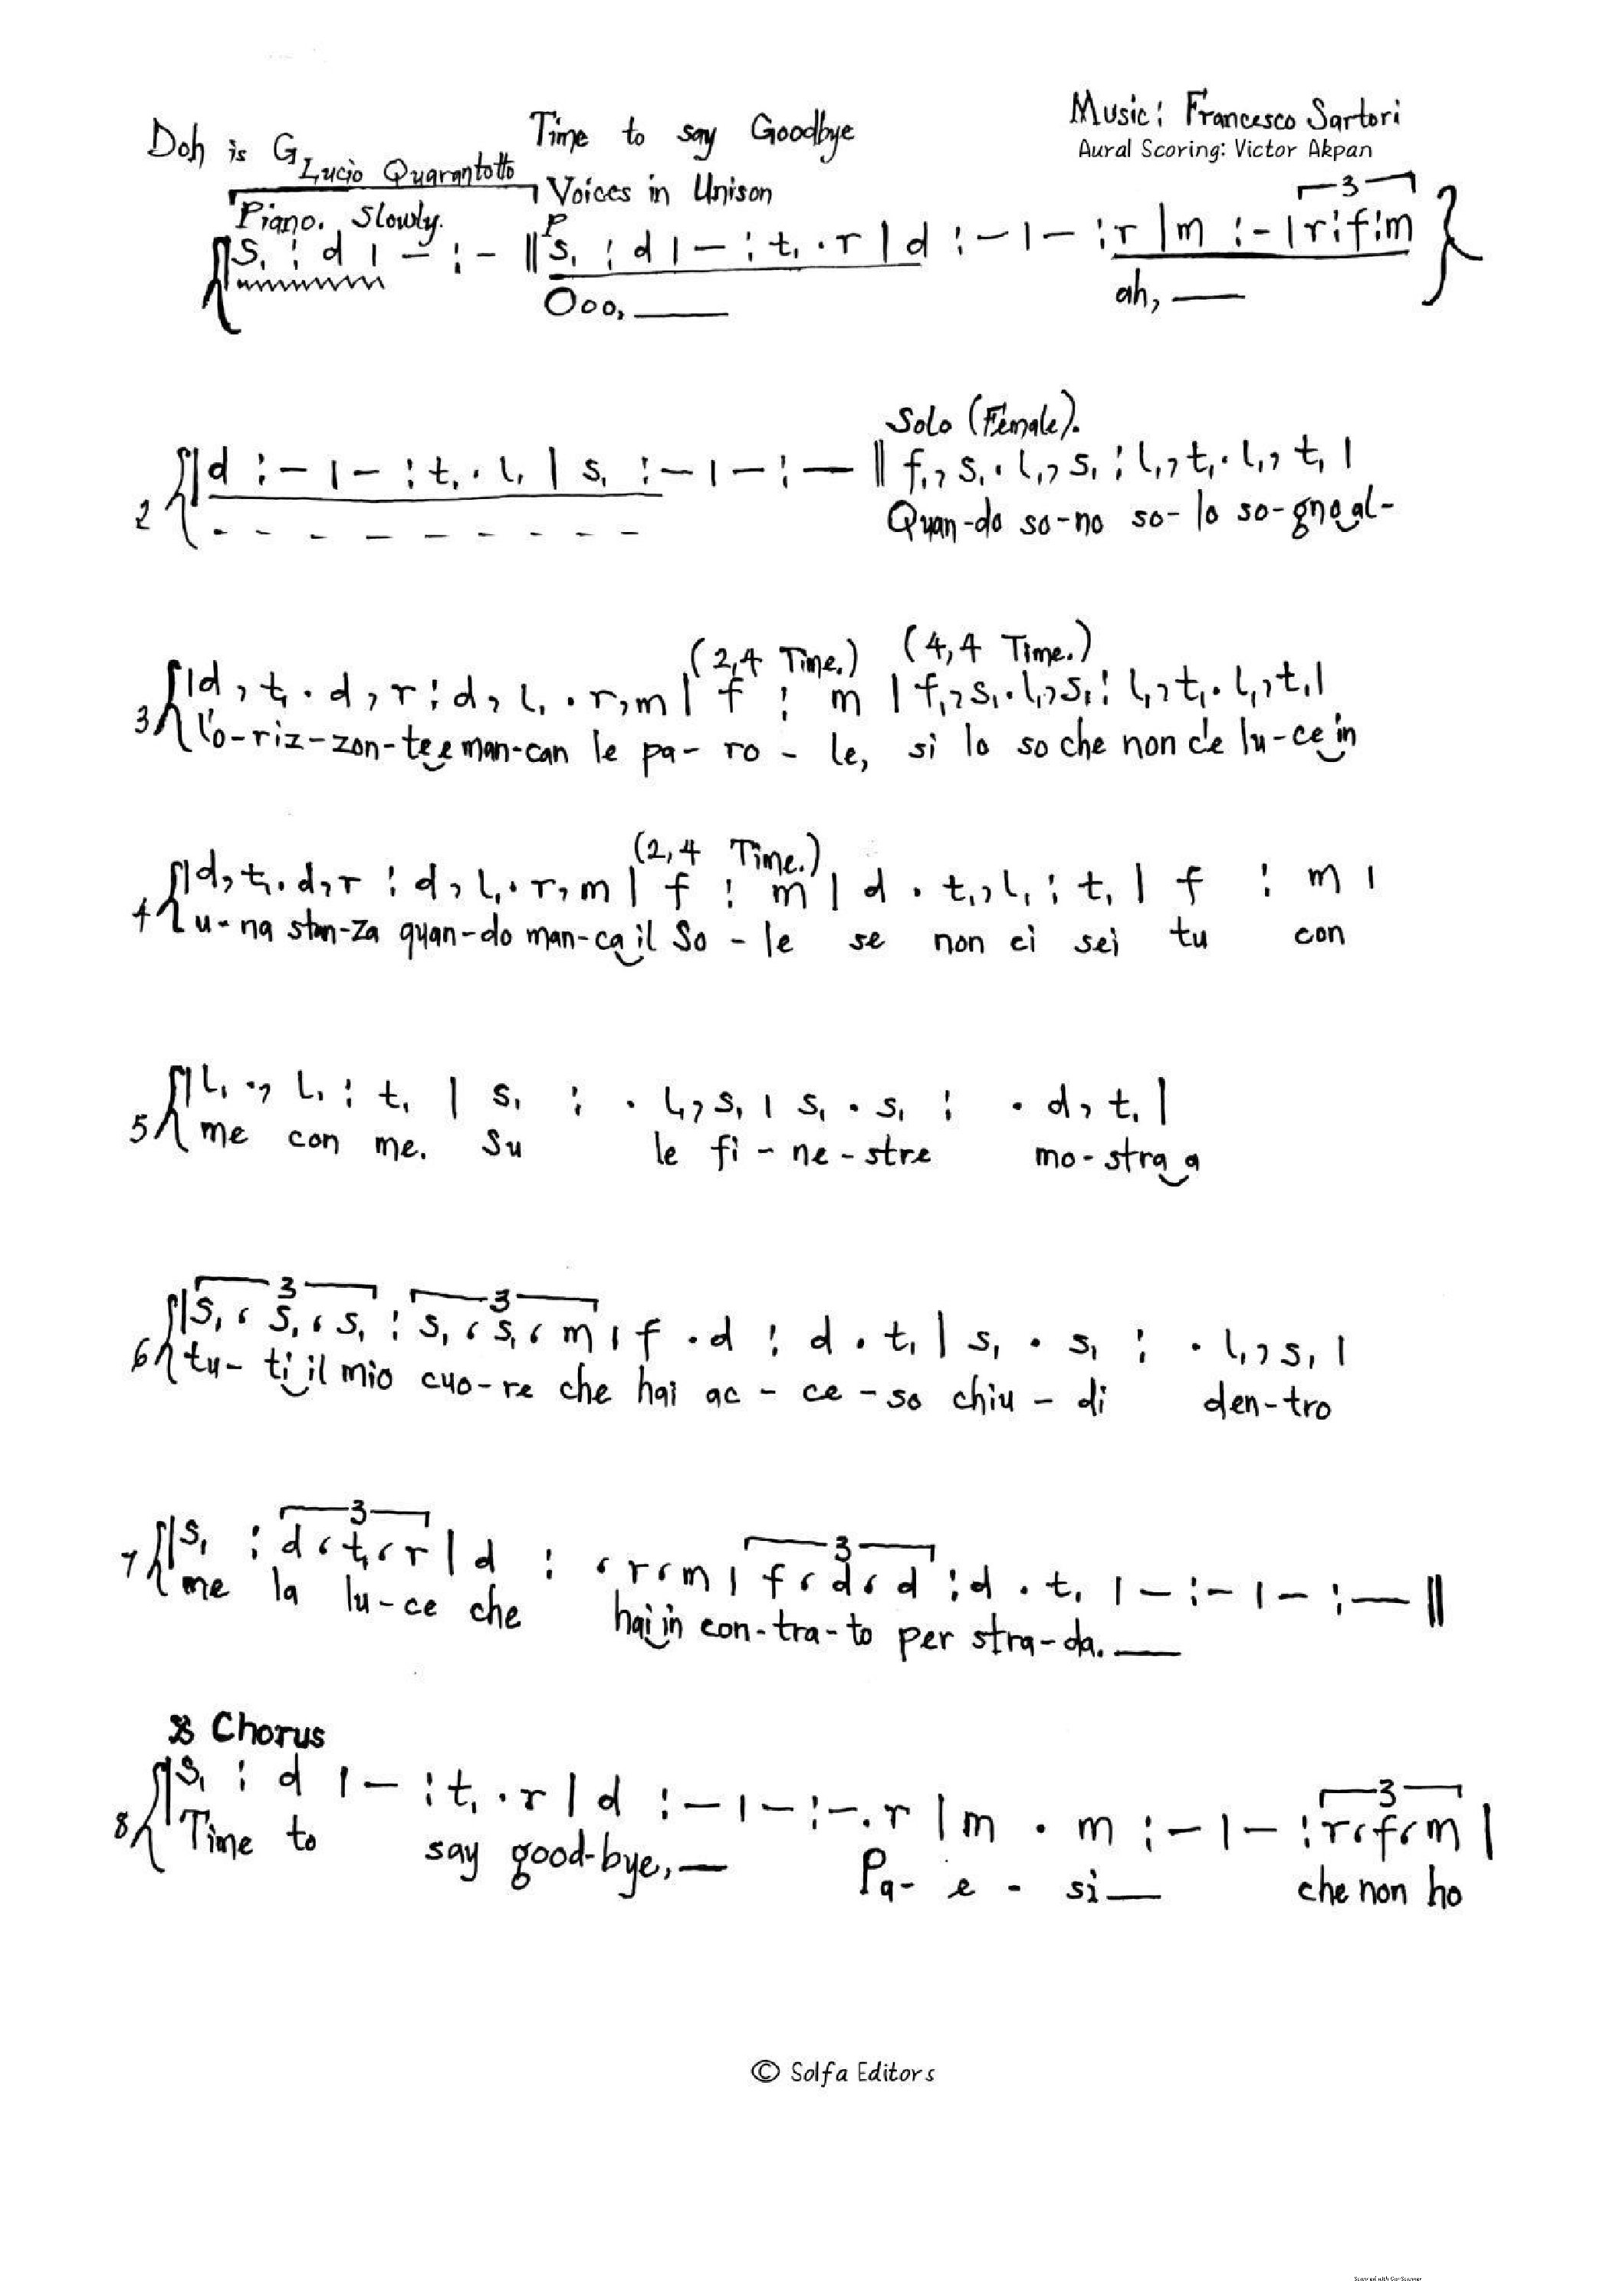 Doh is G
Lucio Quarantotto
Time to say Goodbye
Music: Francesco Sartori
Aural Scoring: Victor Akpan
Voices in Unison
Piano. Slowly.
3
p
{|s₁ : d | – : – ‖ s₁ : d | – : t₁ . r | d : – | – : r | m : – | r : f : m }
Ooo, ___ ah, ___
Solo (Female).
2 {| d : – | – : t₁ . l₁ | s₁ : – | – : — ‖ f₁, s₁ . l₁, s₁ : l₁, t₁ . l₁, t₁ |
- - - - - - - - - Quan-do so-no so-lo so-gno‿al-
(2,4 Time.) (4,4 Time.)
3 {| d, t₁ . d, r : d, l₁ . r, m | f : m | f₁, s₁ . l₁, s₁ : l₁, t₁ . l₁, t₁ |
l'o-riz-zon-te‿e man-can le pa-ro-le, si lo so che non c'e lu-ce‿in
(2,4 Time.)
4 {| d, t₁ . d, r : d, l₁ . r, m | f : m | d . t₁, l₁ : t₁ | f : m |
u-na stan-za quan-do man-ca‿il So-le se non ci sei tu con
5 {| l₁ ., l₁ : t₁ | s₁ : . l₁, s₁ | s₁ . s₁ : . d, t₁ |
me con me. Su le fi-ne-stre mo-stra‿a
3 3
6 {| s₁ ‘ s₁ ‘ s₁ : s₁ ‘ s₁ ‘ m | f . d : d . t₁ | s₁ . s₁ : . l₁, s₁ |
tu-ti‿il mio cuo-re che hai ac-ce-so chiu-di den-tro
3 3
7 {| s₁ : d ‘ t₁ ‘ r | d : ‘ r ‘ m | f ‘ d ‘ d : d . t₁ | – : – | – : — ‖
me la lu-ce che hai‿in con-tra-to per stra-da. ___
𝄋 Chorus
3
8 {| s₁ : d | – : t₁ . r | d : – | – : – . r | m . m : – | – : r ‘ f ‘ m |
Time to say good-bye, — Pa-e-si — che non ho
© Solfa Editors